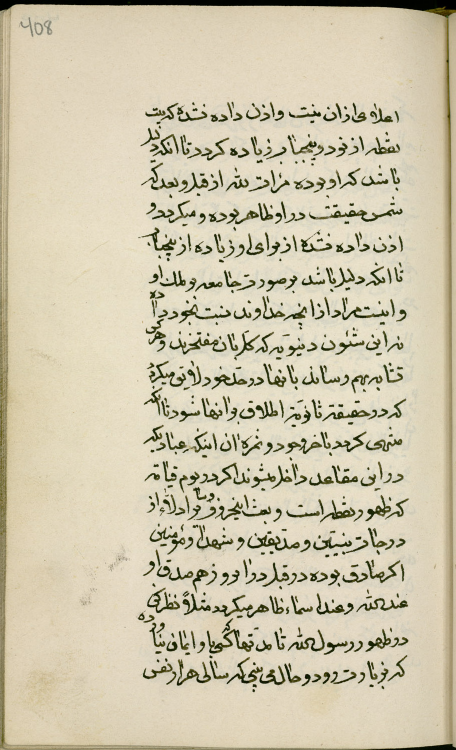 408
اعلای از ان نیت و اذن داده نشده که بیت
نقطه از نود و پنج باب زیاده گردد تا آنکه دلیل
باشد که او بوده مرآت لله از قبل و بعد که
شمس حقیقت در او ظاهر بوده و میگردد و
اذن داده نشده از برای او زیاده از پنج باب
تا آنکه دلیل باشد بر صورت جامعه و ملك او
و اینست مراد از آنچه خداوند نسبت بخود داده
نه این شئون دنیویه که کل بآن مفتخرند و هر کس
تشابه بهم رساند بانها در حد خود لایق میگردد
که در حقیقت ثانویه اطلاق بر آنها شود تا آنکه
منتهی گردد بآخر وجود و ثمره ان اینکه عبادیکه
در این مقاعد داخل میشوند اگر در یوم قیامة
که ظهور نقطه است و بعث این حروف و ما بر ادلاء از
درجات نبیین و صدیقین و شهداء و مؤمنین
اگر صادق بوده در قبل در ان روز هم صدق او
عند الله و عند اسماء ظاهر میگردد مثلا نظر کن
در ظهور رسول الله تا مدتها که کسی باو ایمان نیاورده
که بزیارت رود و حال می بینی که سالی هزار نفس